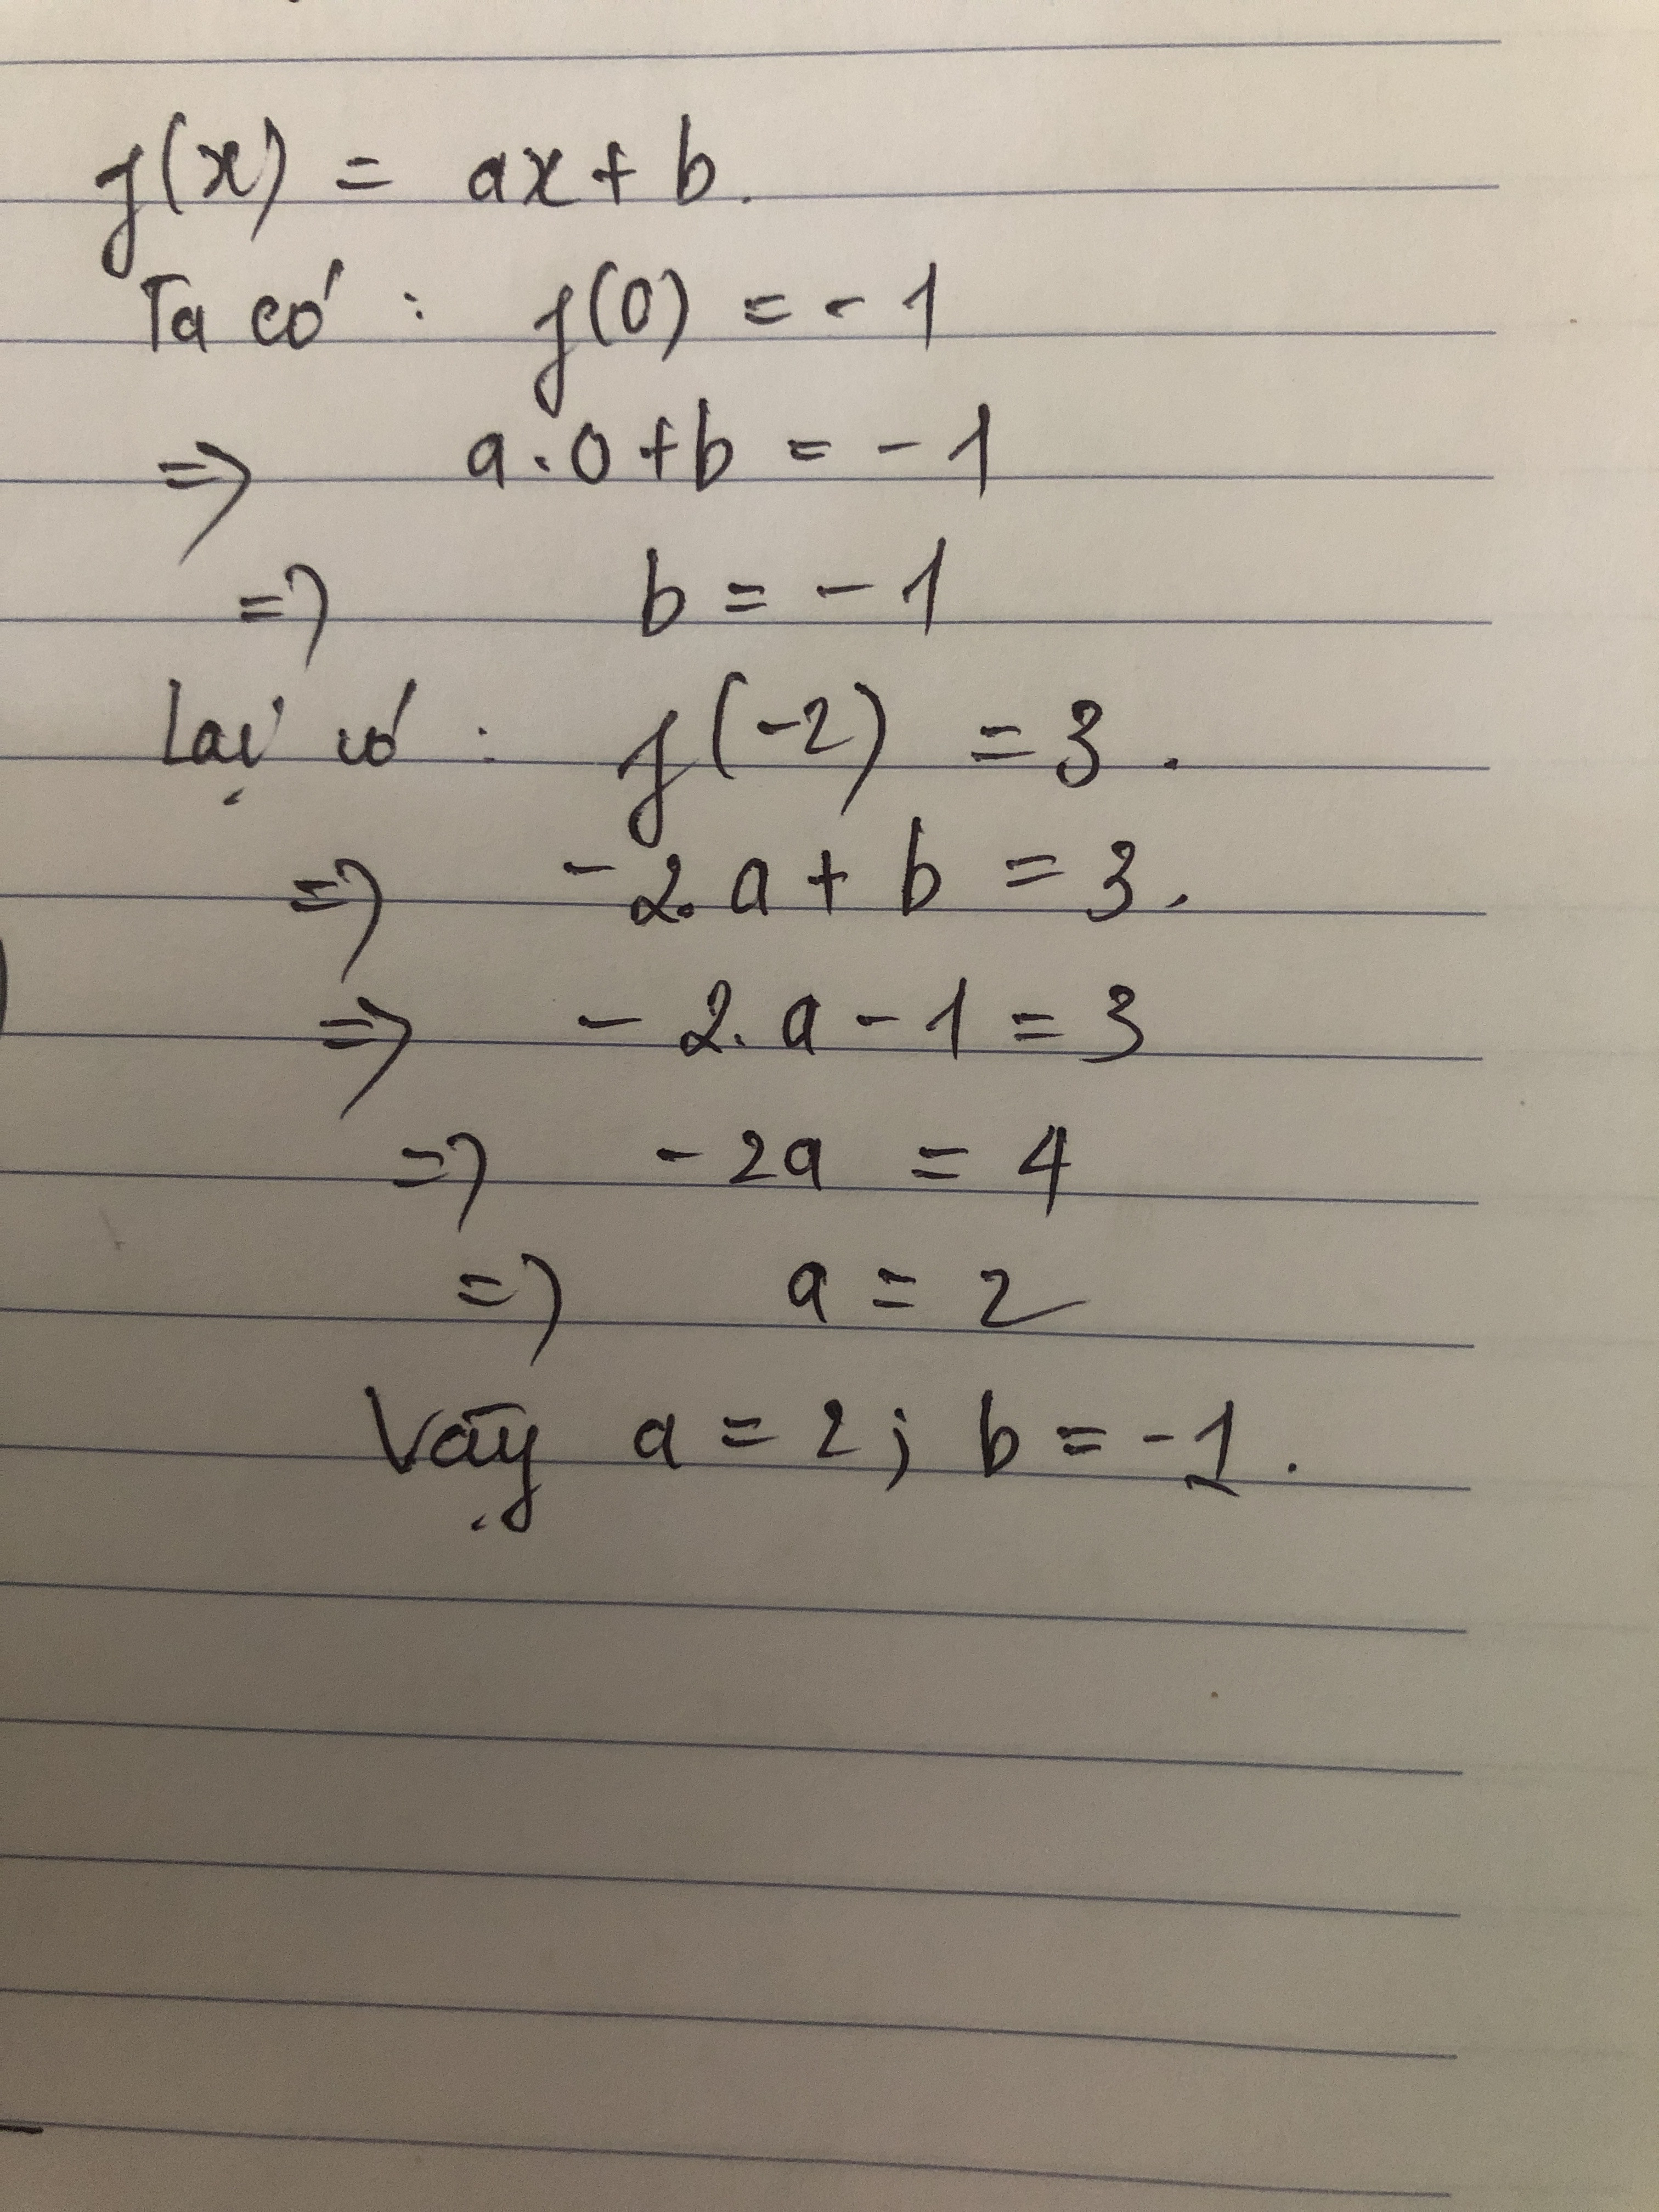 f(x) = ax + b.
Ta có : f(0) = - 1
=> a.0 + b = - 1
=> b = - 1
Lại có : f(-2) = 3.
=> -2.a + b = 3.
=> - 2.a - 1 = 3
=> - 2a = 4
=> a = 2
Vậy a = 2; b = -1.